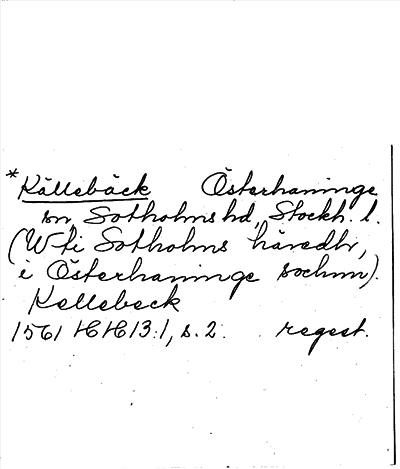 *Källebäck Österhaninge
sn Sotholms hd, Stockh. l.
(W ti Sotholms häredhr,
i Österhaninge sochnn).
Kellebeck
1561 HH 13:1, s. 2. regest.